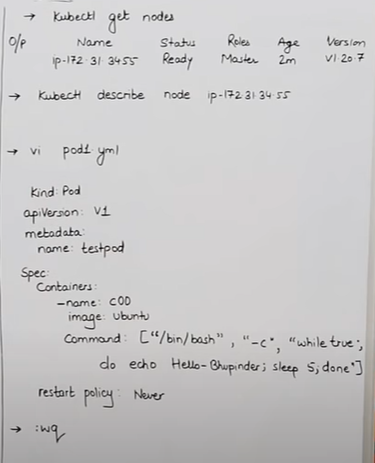 → Kubectl get nodes
O/p Name Status Roles Age Version
ip-172.31.3455 Ready Master 2m V1.20.7
→ Kubectl describe node ip-172.31.34.55
→ vi pod1 yml
Kind: Pod
apiVersion: V1
metadata:
name: testpod
Spec:
Containers:
-name: C00
image: ubuntu
Command: ["/bin/bash", "-c", "while true;
do echo Hello-Bhupinder; sleep 5; done"]
restart policy: Never
→ :wq